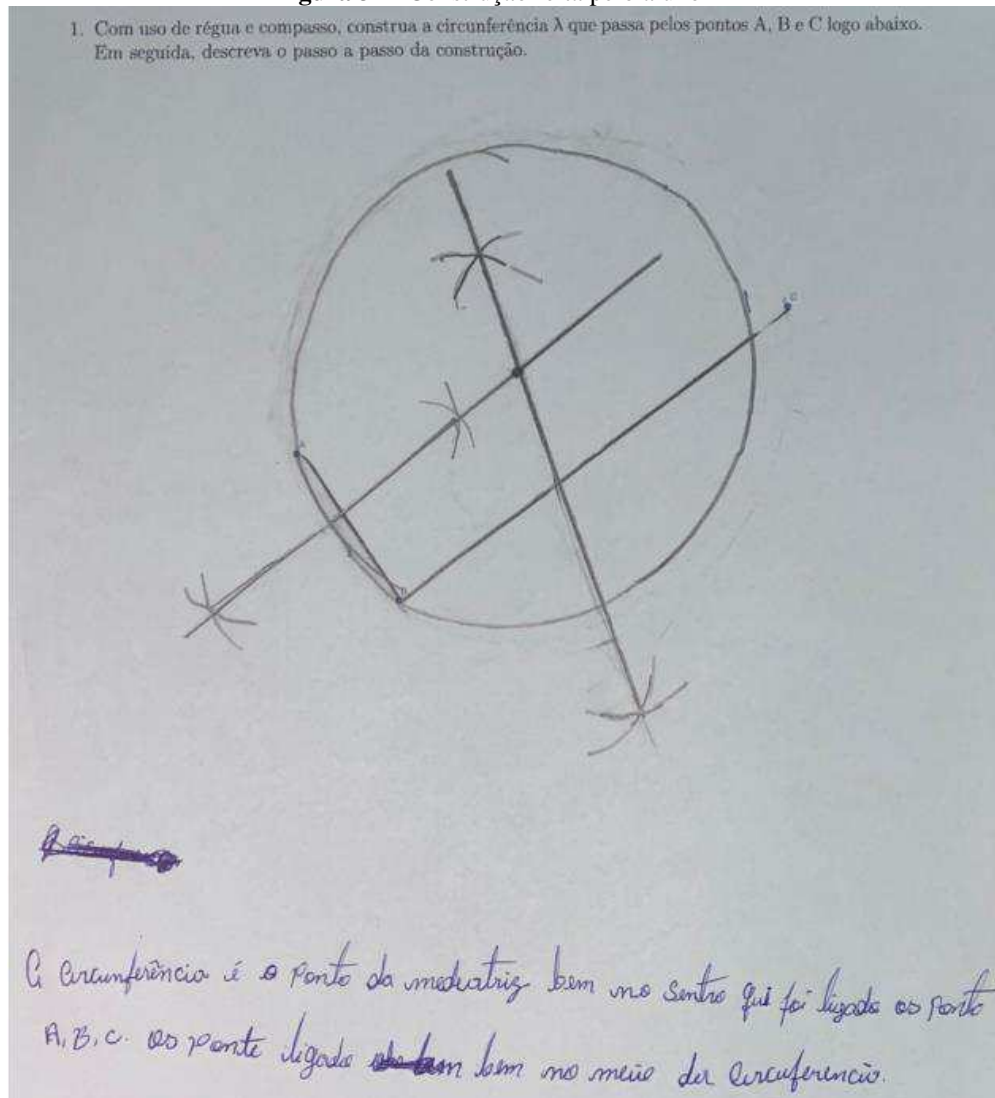 1. Com uso de régua e compasso, construa a circunferência λ que passa pelos pontos A, B e C logo abaixo.
Em seguida, descreva o passo a passo da construção.
C
A
B
A Circunferência é o Ponto da mediatriz bem no sentro qui foi ligado os Ponto
A, B, c. os ponte ligado bem no meio da Circuferencia.